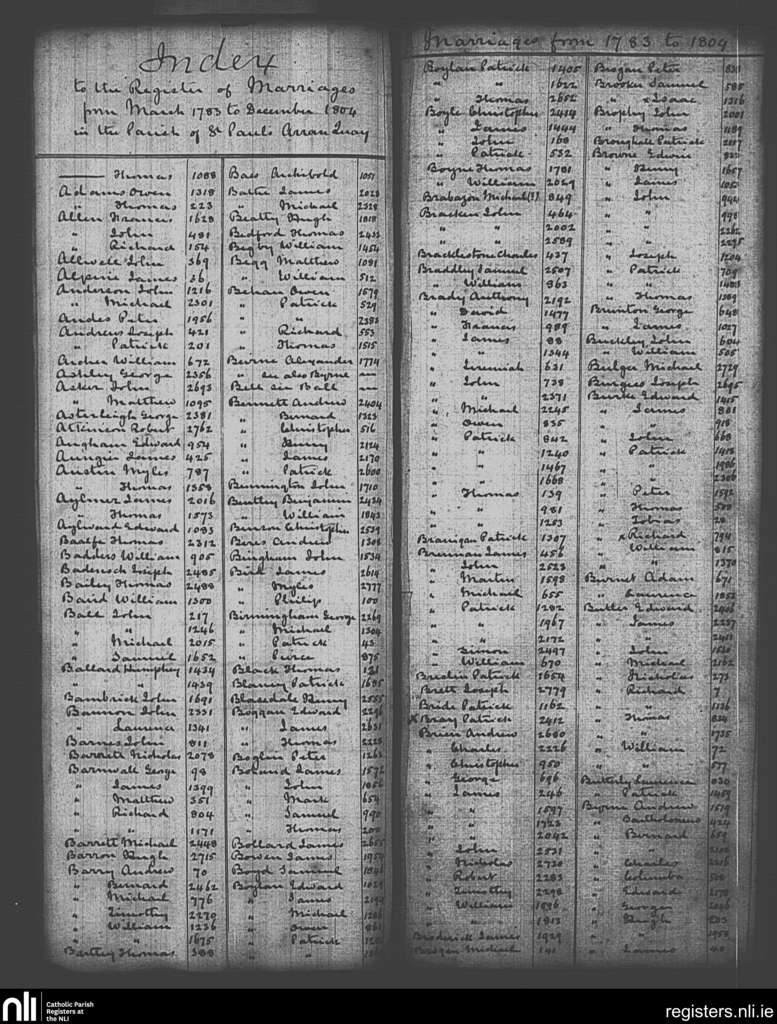 Index
to the Register of Marriages
from March 1783 to December 1804
in the Parish of St Pauls Arran Quay
Thomas 1088
Adams Owen 1318
" Thomas 223
Allen Francis 1628
" John 481
" Richard 154
Allwell John 369
Alpine James 36
Anderson John 1216
" Michael 2301
Andes Peter 1956
Andrews Joseph 421
" Patrick 201
Archer William 672
Ashley George 2356
Asker John 2693
" Matthew 1095
Asterleigh George 2381
Atkinson Robert 2762
Augham Edward 954
Aungier James 425
Austin Myles 787
" Thomas 1358
Aylmer James 2016
" Thomas 1573
Aylward Edward 1083
Baalfe Thomas 2312
Badders William 905
Badensch Joseph 2485
Bailey Thomas 2488
Baird William 1300
Ball John 217
" " 1246
" Michael 2015
" Samuel 1652
Ballard Humphrey 1434
" " 1439
Bambrick John 1691
Bannon John 2331
" Laurence 1341
Barnes John 811
Barrett Nicholas 2078
Barnwall George 98
" James 1399
" Matthew 351
" Richard 804
" " 1171
Barrett Michael 2448
Barron Hugh 2715
Barry Andrew 70
" Bernard 2462
" Michael 776
" Timothy 2270
" William 1236
" " 1675
Bartley Thomas 388
Bass Archibold 1051
Battie James 2028
" Michael 2328
Beatty Hugh 1818
Bedford Thomas 2433
Begby William 1454
Begg Matthew 1091
" William 512
Behan Owen 1579
" Patrick 529
" " 2383
" Richard 553
" Thomas 1515
Beirne Alexander 1774
" see also Byrne
Bell see Ball
Bennett Andrew 2404
" Bernard 1323
" Christopher 516
" Henry 2124
" James 2170
" Patrick 2600
Bennington John 1710
Bentley Benjamin 2434
" William 1843
Benson Christopher 2539
Beres Andrew 1308
Bingham John 1534
Bird James 2614
" Myles 2777
" Philip 100
Birmingham George 2269
" Michael 1304
" Patrick 43
" Peirce 875
Black Thomas 121
Blaney Patrick 1685
Blaxdale Henry 2555
Boggan Edward 2296
" James 2631
" Thomas 2228
Boglan Peter
Boland James 1572
" John 1056
" Mark 654
" Samuel 990
" Thomas 200
Bollard James 2655
Bowen James
Boyd Samuel
Boylan Edward
" James
" Michael
" Owen
" Patrick
" "
Marriages from 1783 to 1804
Boylan Patrick 1405
" " 1622
" Thomas 2652
Boyle Christopher 2414
" James 1444
" John 168
" Patrick 532
Boyne Thomas 1781
" William 2069
Brabazon Michael (?) 849
Bracken John 464
" " 2002
" " 2589
Bracklistone Charles 437
Braddley Samuel 2507
" William 863
Brady Anthony 2192
" David 1477
" Francis 989
" James 88
" " 1344
" Jeremiah 631
" John 738
" " 2371
" Michael 2245
" Owen 835
" Patrick 842
" " 1240
" " 1467
" " 1668
" Thomas 139
" " 981
" " 1253
Branigan Patrick 1307
Brennan James 456
" John 2523
" Martin 1598
" Michael 655
" Patrick 1282
" " 1967
" " 2172
" Simon 2497
" William 670
Breslin Patrick 1654
Brett Joseph 2779
Bride Patrick 1162
x Bray Patrick 2412
Brien Andrew 2680
" Charles 2226
" Christopher 950
" George 696
" James 246
" " 1597
" " 1723
" " 2042
" John 2531
" Nicholas 2730
" Robert 2283
" Timothy 2298
" William 1596
" " 1913
Broderick James 1929
Brogan Michael 141
Brogan Peter 831
Brooker Samuel 585
" x Isaac 1316
Brophy John 2001
" Thomas 1189
Broughall Patrick 2017
Browne Edwin 832
" Henny 1657
" James 1050
" John 944
" " 998
" " 2262
" " 2295
" Joseph 1204
" Patrick 709
" " 1403
" Thomas 1389
Brunton George 648
" James 1027
Buckley John 604
" William 505
Bulger Michael 2729
Burgess Joseph 2695
Burke Edward 1415
" James 801
" " 918
" John 668
" Patrick 1418
" " 1986
" " 2306
" Peter 1592
" Thomas 500
" Tobias 28
" x Richard 794
" William 815
" " 1370
Burnet Adam 671
" Laurence 1852
Butler Edward 2406
" James 2237
" " 2411
" John 1520
" Michael 2162
" Nicholas 273
" Richard 7
" " 1136
" Thomas 834
" " 1735
" William 72
" " 577
Butterly Laurence 830
" Patrick 1459
Byrne Andrew 1519
" Bartholomew 424
" Bernard 659
" "
" Charles
" Columba
" Edward
" George
" Hugh
" "
" James
nli
Catholic Parish
Registers at
the NLI
registers.nli.ie